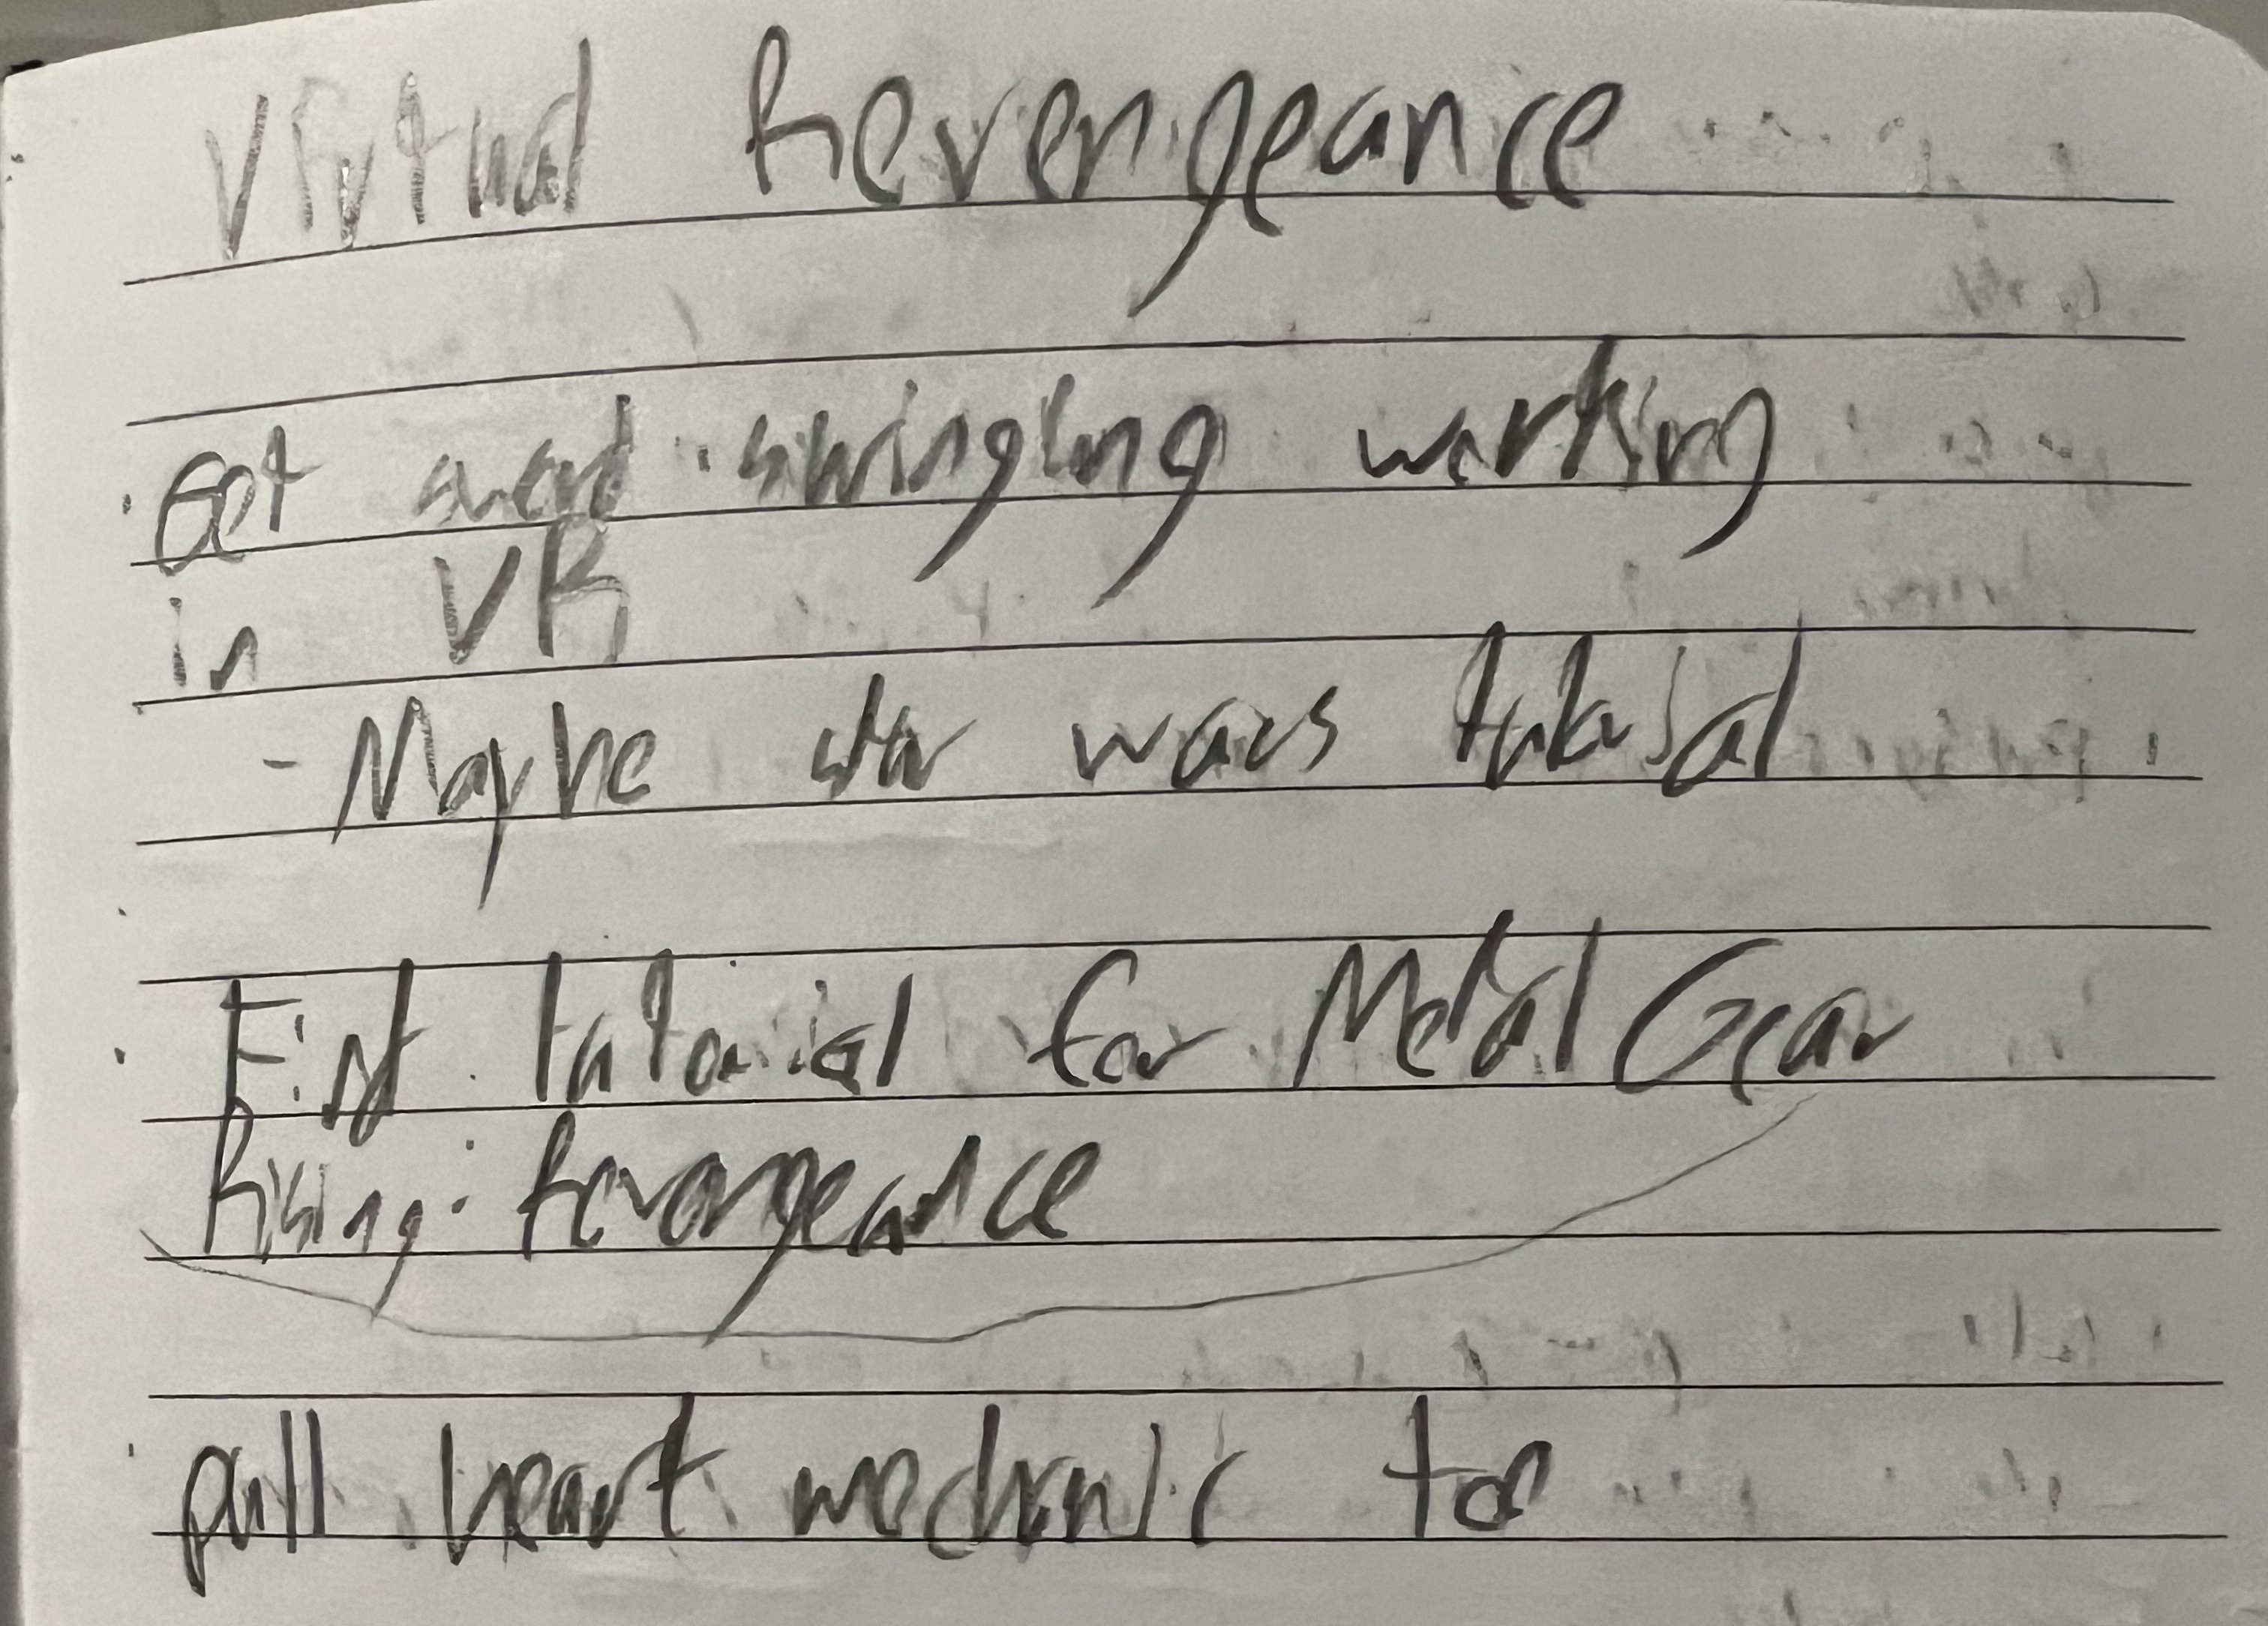 Virtual Revengeance
· Get sword swinging working
in VR
- Maybe star wars tutorial
· First tutorial for Metal Gear
Rising: Revengeance
· pull heart mechanic too